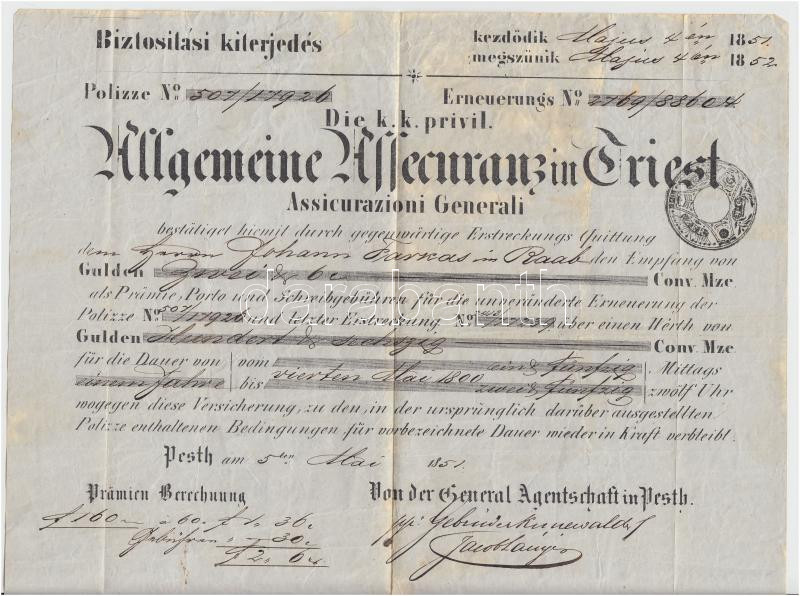 Biztositási kiterjedés
kezdödik Majus 4 én 1851.
megszünik Majus 4 én 1852
Polizze No 507/17926 Erneuerungs No 2769/88604
Die k. k. privil.
Allgemeine Assecuranz in Triest
Assicurazioni Generali
bestätiget hiemit durch gegenwärtige Erstreckungs Quittung
dem Herrn Johann Farkas in Raab den Empfang von
Gulden Zwei & 6 Conv. Mze.
als Prämie, Porto und Schreibgebühren für die unveränderte Erneuerung der
Polizze No 507/17926 und letzter Erstreckung No über einen Werth von
Gulden Hundert & sechszig Conv. Mze
für die Dauer von vom ein & fünfzig Mittags
einem Jahre bis vierten Mai 1800 zwei & fünfzig zwölf Uhr
wogegen diese Versicherung, zu den, in der ursprünglich darüber ausgestellten
Polizze enthaltenen Bedingungen für vorbezeichnete Dauer wieder in Kraft verbleibt.
Pesth am 5ten Mai 1851.
Prämien Berechnung Von der General Agentschaft in Pesth.
f 160 à 60 f 1. 36
Gebühren " 30
f 2. 6
darabanth